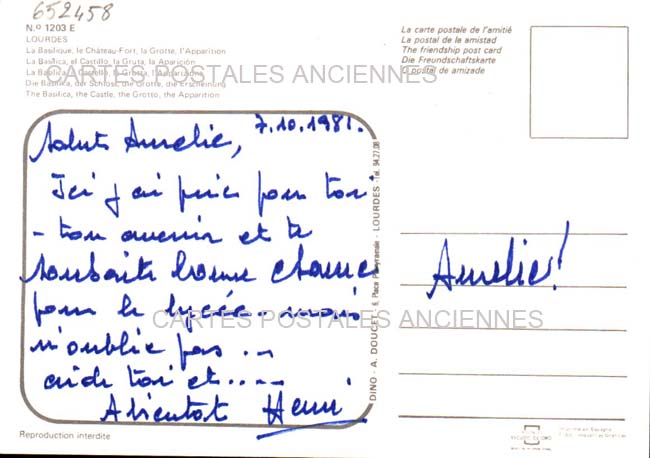 652458
N.º 1203 E
LOURDES
La Basilique, le Château-Fort, la Grotte, l'Apparition
La Basílica, el Castillo, la Gruta, la Aparición
La Basilica, il Castello, la Grotta, l'Apparizione
Die Basilika, der Schloss, die Grotte, die Erscheinung
The Basilica, the Castle, the Grotto, the Apparition
La carte postale de l'amitié
La postal de la amistad
The friendship post card
Die Freundschaftskarte
O postal de amizade
CARTES POSTALES ANCIENNES
7.10.1981.
Salut Aurelie,
Ici j'ai prié pour toi
- ton avenir et te
souhaite bonne chance
pour le lycée - mais
n'oublie pas ...
aide toi et .....
A bientot Henri
Aurelie!
CARTES POSTALES ANCIENNES
DINO - A. DOUCET - 6, Place Peyramale - LOURDES - Tel. 94.27.08
Reproduction interdite